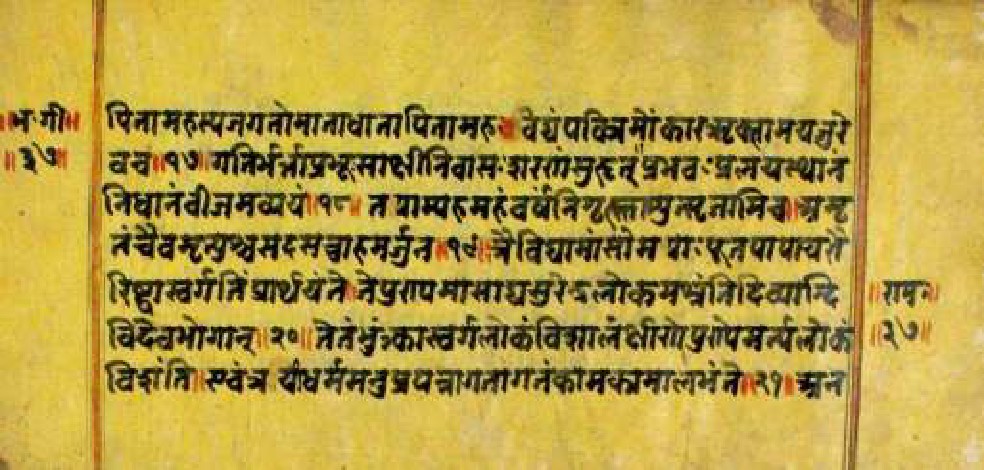 ॥भ·गी॥
॥३७॥
पितामहस्यजगतोमाताधातापितामह॥वेद्यंपवित्रमोंकारऋक्सामयजुरे
वच॥१७॥गतिर्भर्त्ताप्रभूःसाक्षीनिवासःशरणंसुहृत्प्रभवःप्रलयस्थानं
निधानंवीजमव्ययं॥१८॥तपाम्यहमहंवर्षंनिगृह्णाम्युत्सृजामिच॥अमृ
तंचैवमृत्युश्चसदसच्चाहमर्जुन॥१९॥त्रैविद्यामांसोमपाःपूतपापायज्ञै
रिष्ट्वास्वर्गतिंप्रार्थयंते॥तेपुण्यमासाद्यसुरेंद्रलोकमश्नंतिदिव्यान्दि
विदेवभोगान्॥२०॥तेतंभुंक्त्कास्वर्गलोकंविशालंक्षीणेपुण्येमर्त्यलोकं
विशंति॥एवंत्रयीधर्ममनुप्रपन्नागतागतंकामकामालभंते॥२१॥अन
॥राम॥
॥३७॥